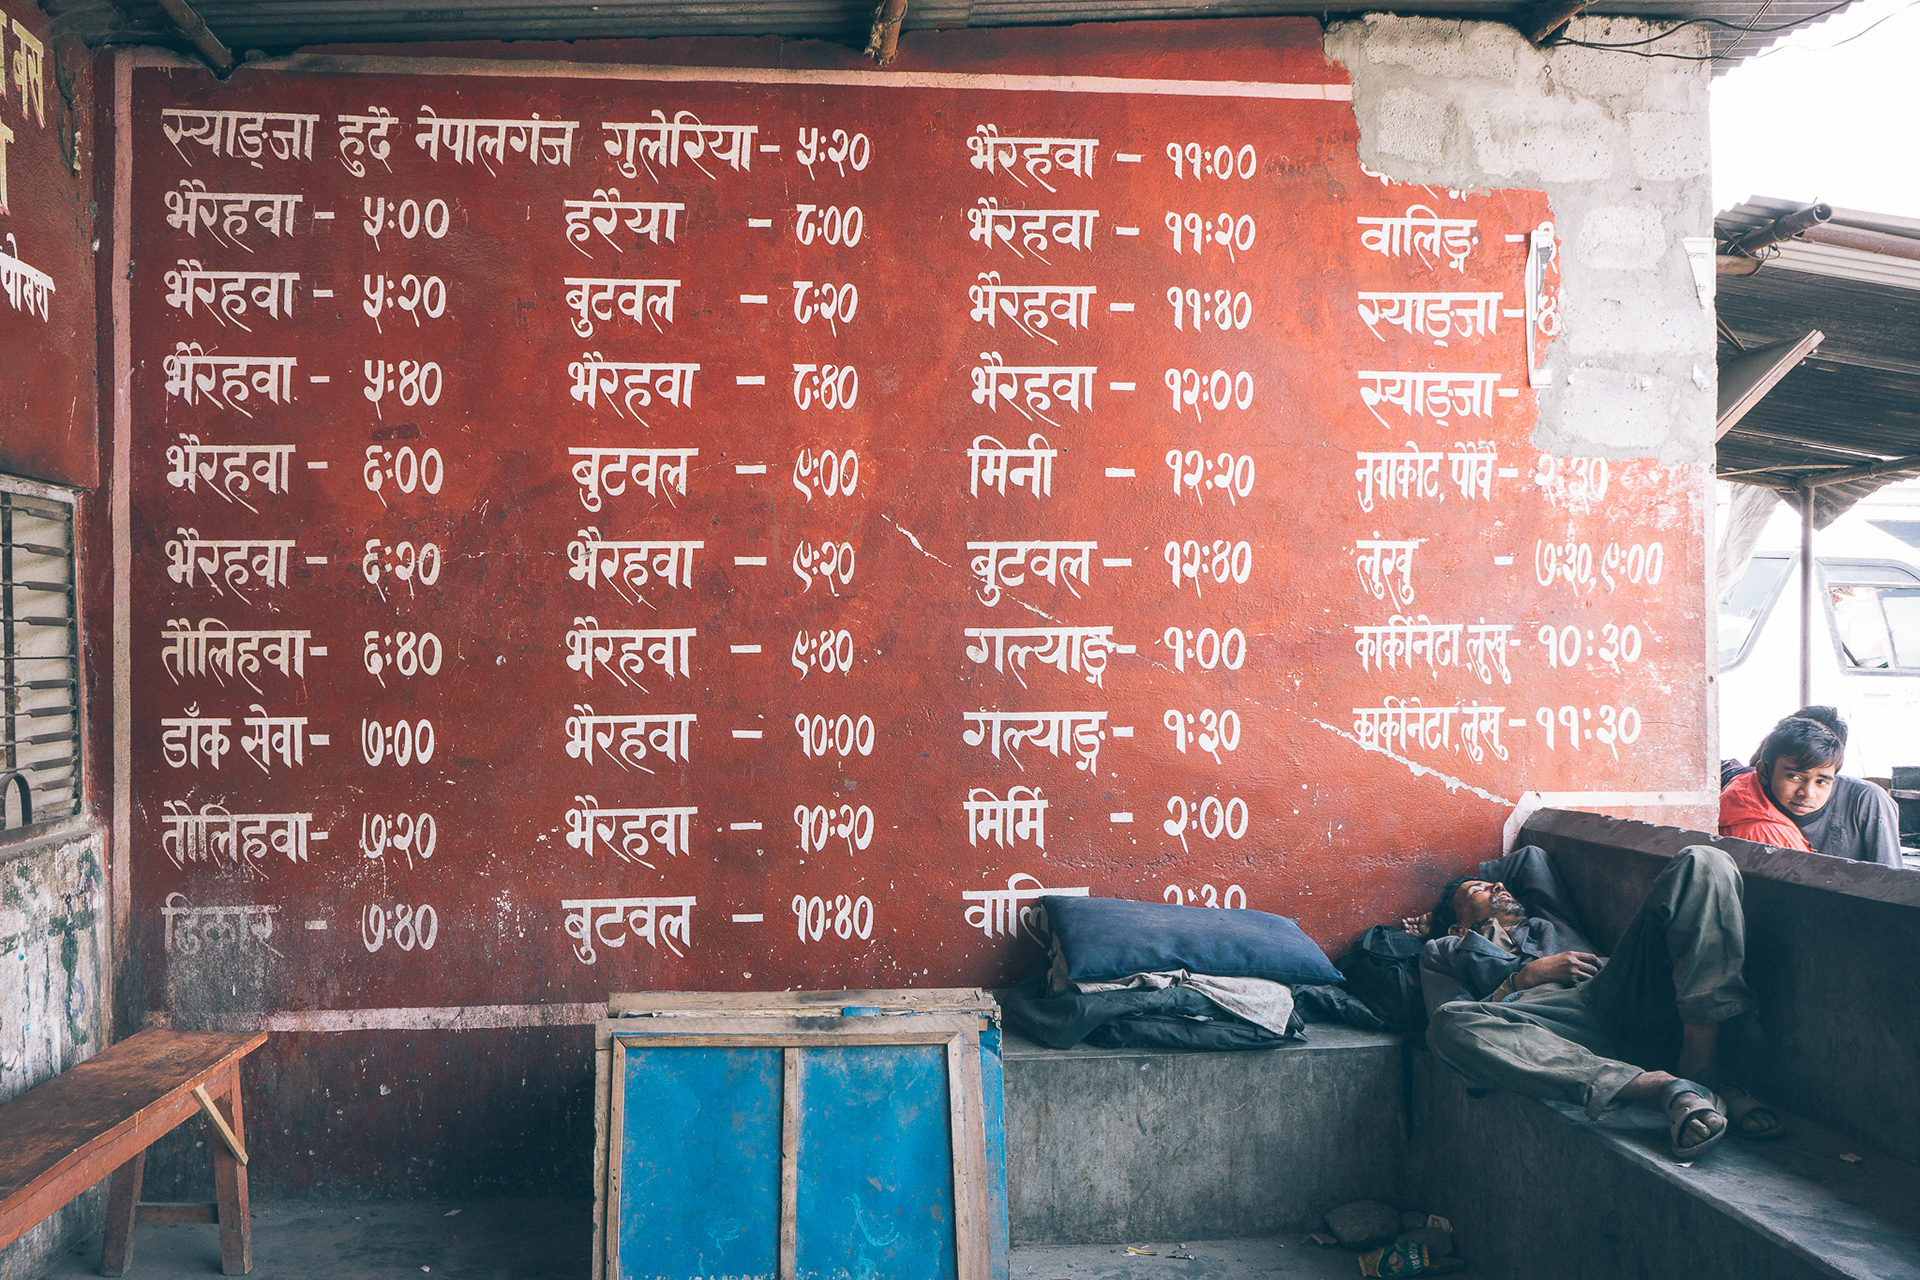 बस
पोखरा
स्याङ्जा हुदै नेपालगंज गुलेरिया- ५:२०
भैरहवा - ५:००
भैरहवा - ५:२०
भैरहवा - ५:४०
भैरहवा - ६:००
भैरहवा - ६:२०
तौलिहवा- ६:४०
डाँक सेवा- ७:००
तौलिहवा- ७:२०
डिकार - ७:४०
हरैया - ८:००
बुटवल - ८:२०
भैरहवा - ८:४०
बुटवल - ९:००
भैरहवा - ९:२०
भैरहवा - ९:४०
भैरहवा - १०:००
भैरहवा - १०:२०
बुटवल - १०:४०
भैरहवा - ११:००
भैरहवा - ११:२०
भैरहवा - ११:४०
भैरहवा - १२:००
मिनी - १२:२०
बुटवल - १२:४०
गल्याङ्ग- १:००
गल्याङ्ग- १:३०
मिर्मि - २:००
वालि २:३०
वालिङ्ग -
स्याङ्जा- ४
स्याङ्जा-
नुवाकोट, पौवै- २:३०
लुंखु - ७:३०,९:००
कार्कीनेटा,लुंखु- १०:३०
कार्कीनेटा,लुंखु- ११:३०